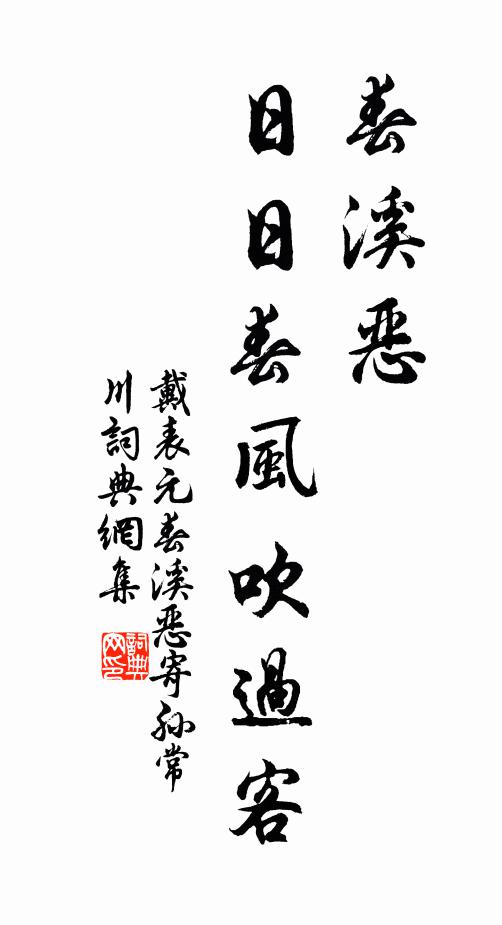 春溪惡
日日春風吹過客
戴表元春溪惡寄孫常
川詞典網集
詞典
网印